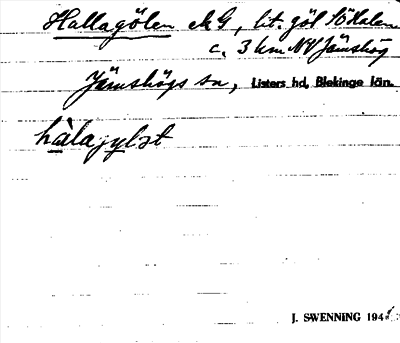 Hallagölen MG, lit. göl 10 Helen
c. 3 km NV Jämshög
Jämshögs sn, Listers hd, Blekinge län.
hàlajylət
J. SWENNING 194